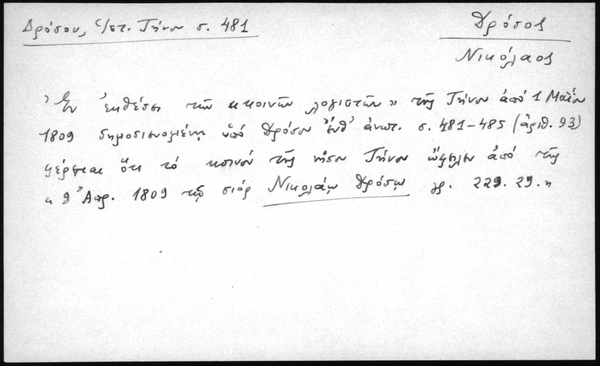 Δρόσου, Ἱστ. Τήνου σ. 481
Δρόσος
Νικόλαος
Ἐν ἐκθέσει τῶν «κοινῶν λογιστῶν» τῆς Τήνου ἀπό 1 Μαΐου
1809 δημοσιευομένῃ ὑπό Δρόσου ἔνθ' ἀνωτ. σ. 481-485 (ἀριθ. 93)
φέρεται ὅτι τό κοινόν τῆς νήσου Τήνου ὤφειλεν ἀπό τῆς
« 9 Ἀπρ. 1809 τῷ σιόρ Νικολάῳ Δρόσῳ γρ. 229.29.»